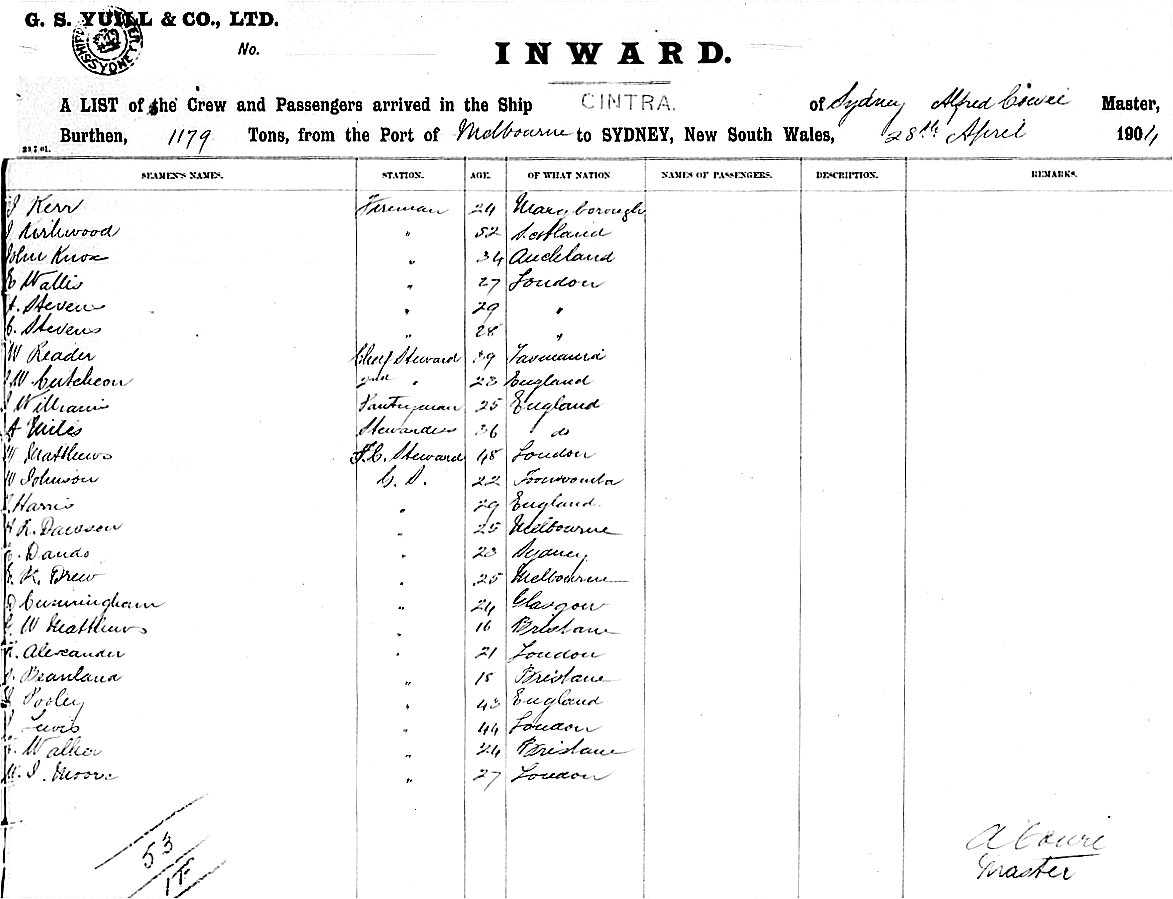 G. S. YUILL & CO., LTD.
No.
INWARD.
A LIST of the Crew and Passengers arrived in the Ship CINTRA. of Sydney Alfred Cowie Master,
Burthen, 1179 Tons, from the Port of Melbourne to SYDNEY, New South Wales, 28th April 1904
SEAMEN'S NAMES. STATION. AGE. OF WHAT NATION. NAMES OF PASSENGERS. DESCRIPTION. REMARKS.
J Kerr Fireman 24 Maryborough
J Kirkwood " 52 Scotland
John Knox " 34 Auckland
E Wallis " 27 London
A. Steven " 29 "
C. Stevens " 28 "
W Reader Chief Steward 39 Tasmania
J W Cutcheon 2nd " 23 England
J Williams Pantryman 25 England
A Miles Stewardess 36 do
W Matthews F.C. Steward 48 London
W Johnson C. S. 22 Toowoomba
Harris " 29 England.
H R. Dawson " 25 Melbourne
Dando " 23 Sydney
K. Drew " 25 Melbourne
D Cunningham " 24 Glasgow
W Matthews " 16 Brisbane
Alexander " 21 London
Beanland " 18 Brisbane
Pooley " 43 England
J Lewis " 44 London
Walker " 24 Brisbane
W. J. Moore " 27 London
53
A Cowie
Master